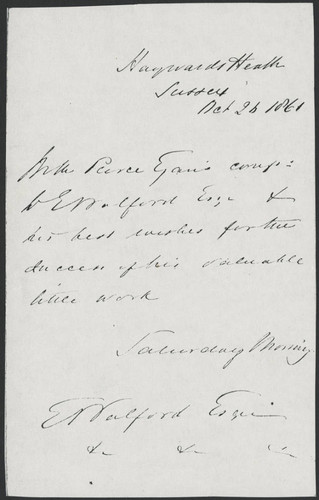 Haywards Heath
Sussex
Oct 26 1861
With Pierce Egan's comp:
to E Walford Esqr &
his best wishes for the
success of his valuable
little work
Saturday Morning
E Walford Esqre
&c &c &c